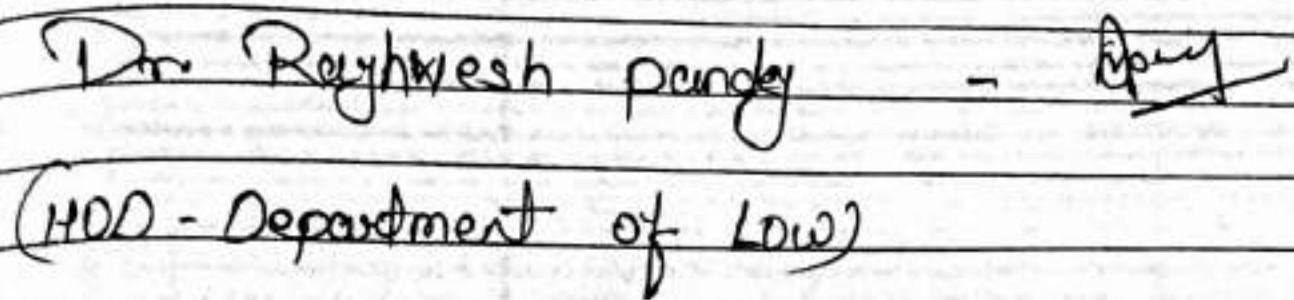 Dr. Raghwesh pandey -
(HOD - Department of Law)